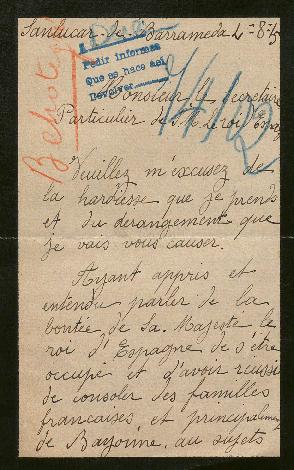 Sanlucar de Barrameda 2-8-15
Pedir informes
Que se hace asi
Devolver
Monsieur le Secretaire
Particulier de S.M. le roi
Veuillez m'excusez de
la hardiesse que je prends
et du derangement que
je vais vous causer.
Ayant appris et
entendu parler de la
bontée de Sa Majesté le
roi d'Espagne de s'être
occupé et d'avoir réussi
de consoler des familles
françaises, et principalement
de Bayonne, au sujets